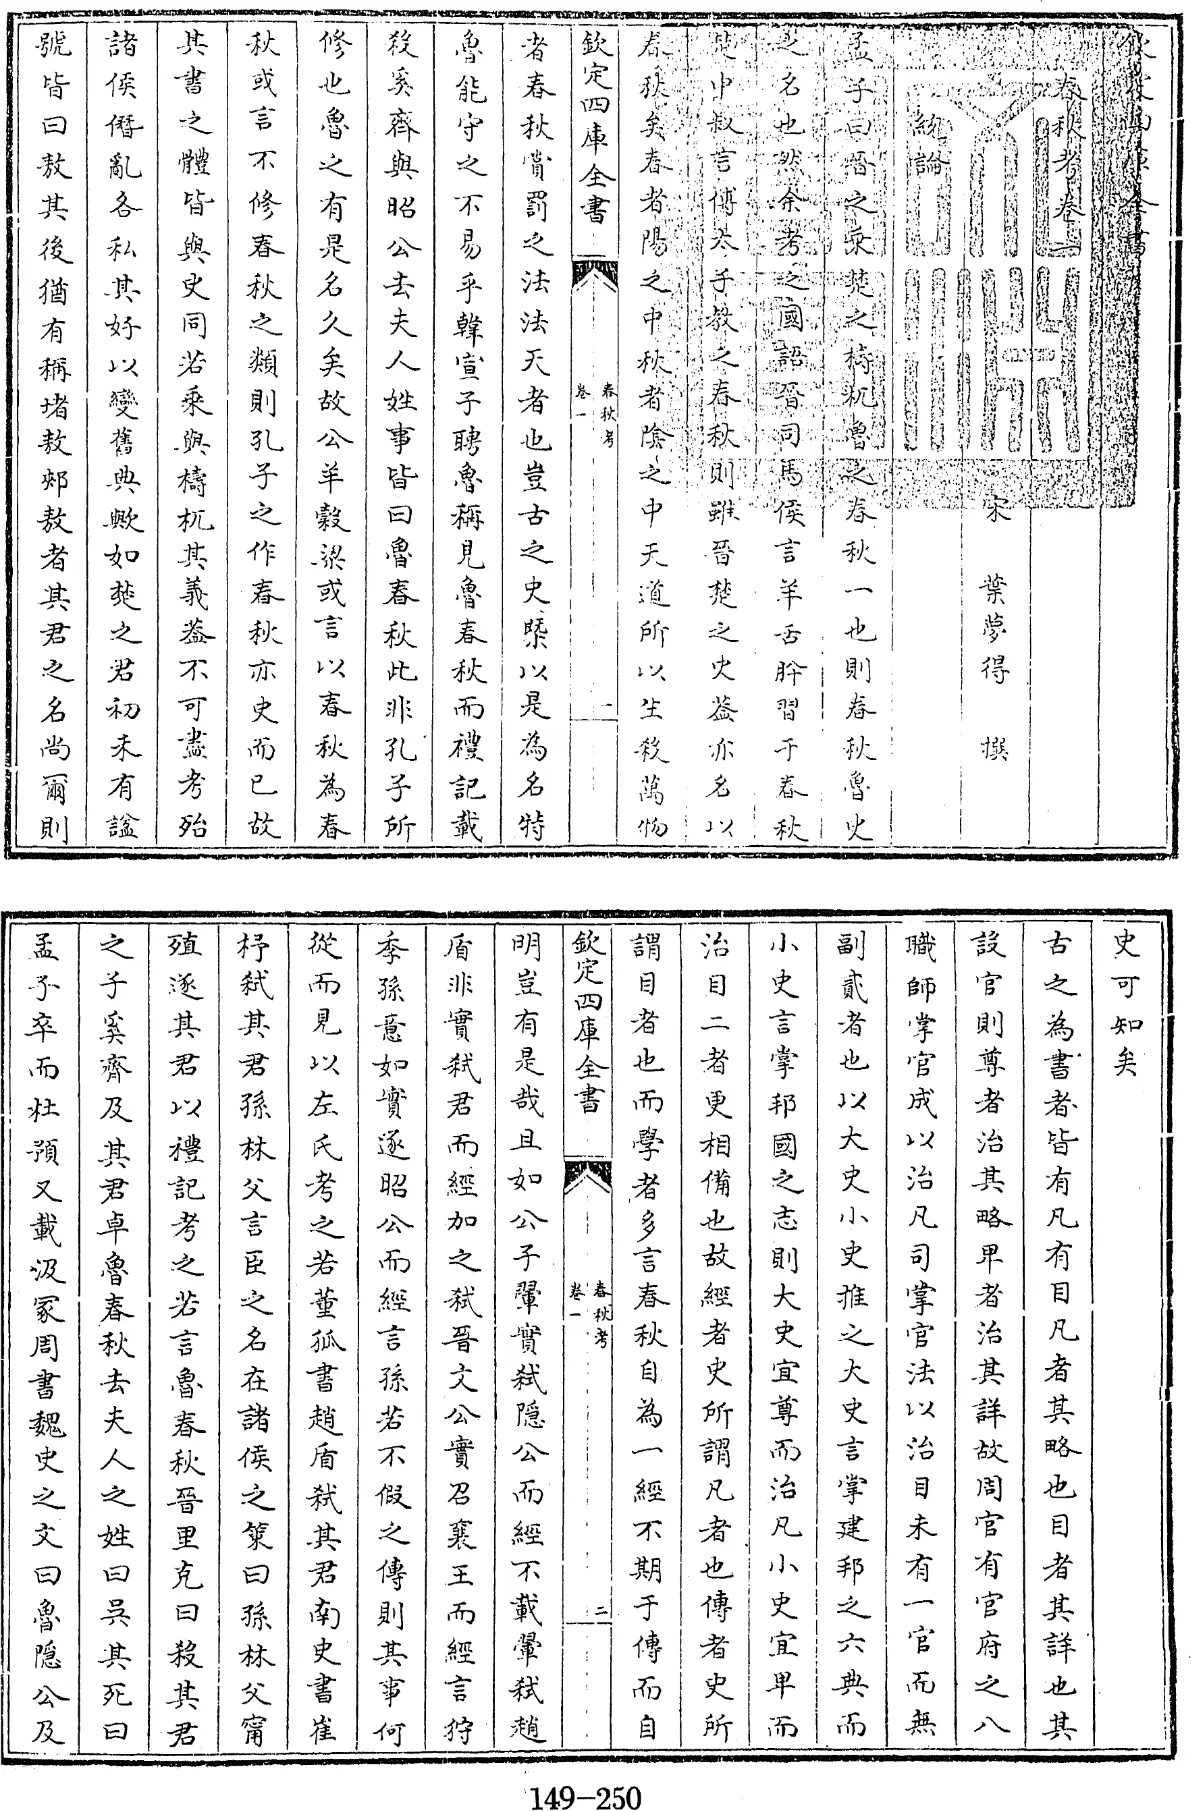 欽定四庫全書
春秋考卷一
宋 葉夢得 撰
統論
孟子曰晉之乘楚之檮杌魯之春秋一也則春秋魯史
之名也然余考之國語晉司馬侯言羊舌肸習于春秋
楚申叔言傅太子教之春秋則雖晉楚之史蓋亦名以
春秋矣春者陽之中秋者陰之中天道所以生殺萬物
欽定四庫全書
春秋考
卷一
一
者春秋賞罰之法法天者也豈古之史槩以是為名特
魯能守之不易乎韓宣子聘魯稱見魯春秋而禮記載
殺奚齊與昭公去夫人姓事皆曰魯春秋此非孔子所
修也魯之有是名久矣故公羊穀梁或言以春秋為春
秋或言不修春秋之類則孔子之作春秋亦史而已故
其書之體皆與史同若乘與檮杌其義蓋不可盡考殆
諸侯僭亂各私其好以變舊典歟如楚之君初未有諡
號皆曰敖其後猶有稱堵敖郟敖者其君之名尚爾則
史可知矣
古之為書者皆有凡有目凡者其略也目者其詳也其
設官則尊者治其略卑者治其詳故周官有官府之八
職師掌官成以治凡司掌官法以治目未有一官而無
副貳者也以大史小史推之大史言掌建邦之六典而
小史言掌邦國之志則大史宜尊而治凡小史宜卑而
治目二者更相備也故經者史所謂凡者也傳者史所
謂目者也而學者多言春秋自為一經不期于傳而自
欽定四庫全書
春秋考
卷一
二
明豈有是哉且如公子翬實弒隱公而經不載翬弒趙
盾非實弒君而經加之弒晉文公實召襄王而經言狩
季孫意如實逐昭公而經言孫若不假之傳則其事何
從而見以左氏考之若董狐書趙盾弒其君南史書崔
杼弒其君孫林父言臣之名在諸侯之策曰孫林父甯
殖逐其君以禮記考之若言魯春秋晉里克曰殺其君
之子奚齊及其君卓魯春秋去夫人之姓曰吳其死曰
孟子卒而杜預又載汲冢周書魏史之文曰魯隱公及
149-250